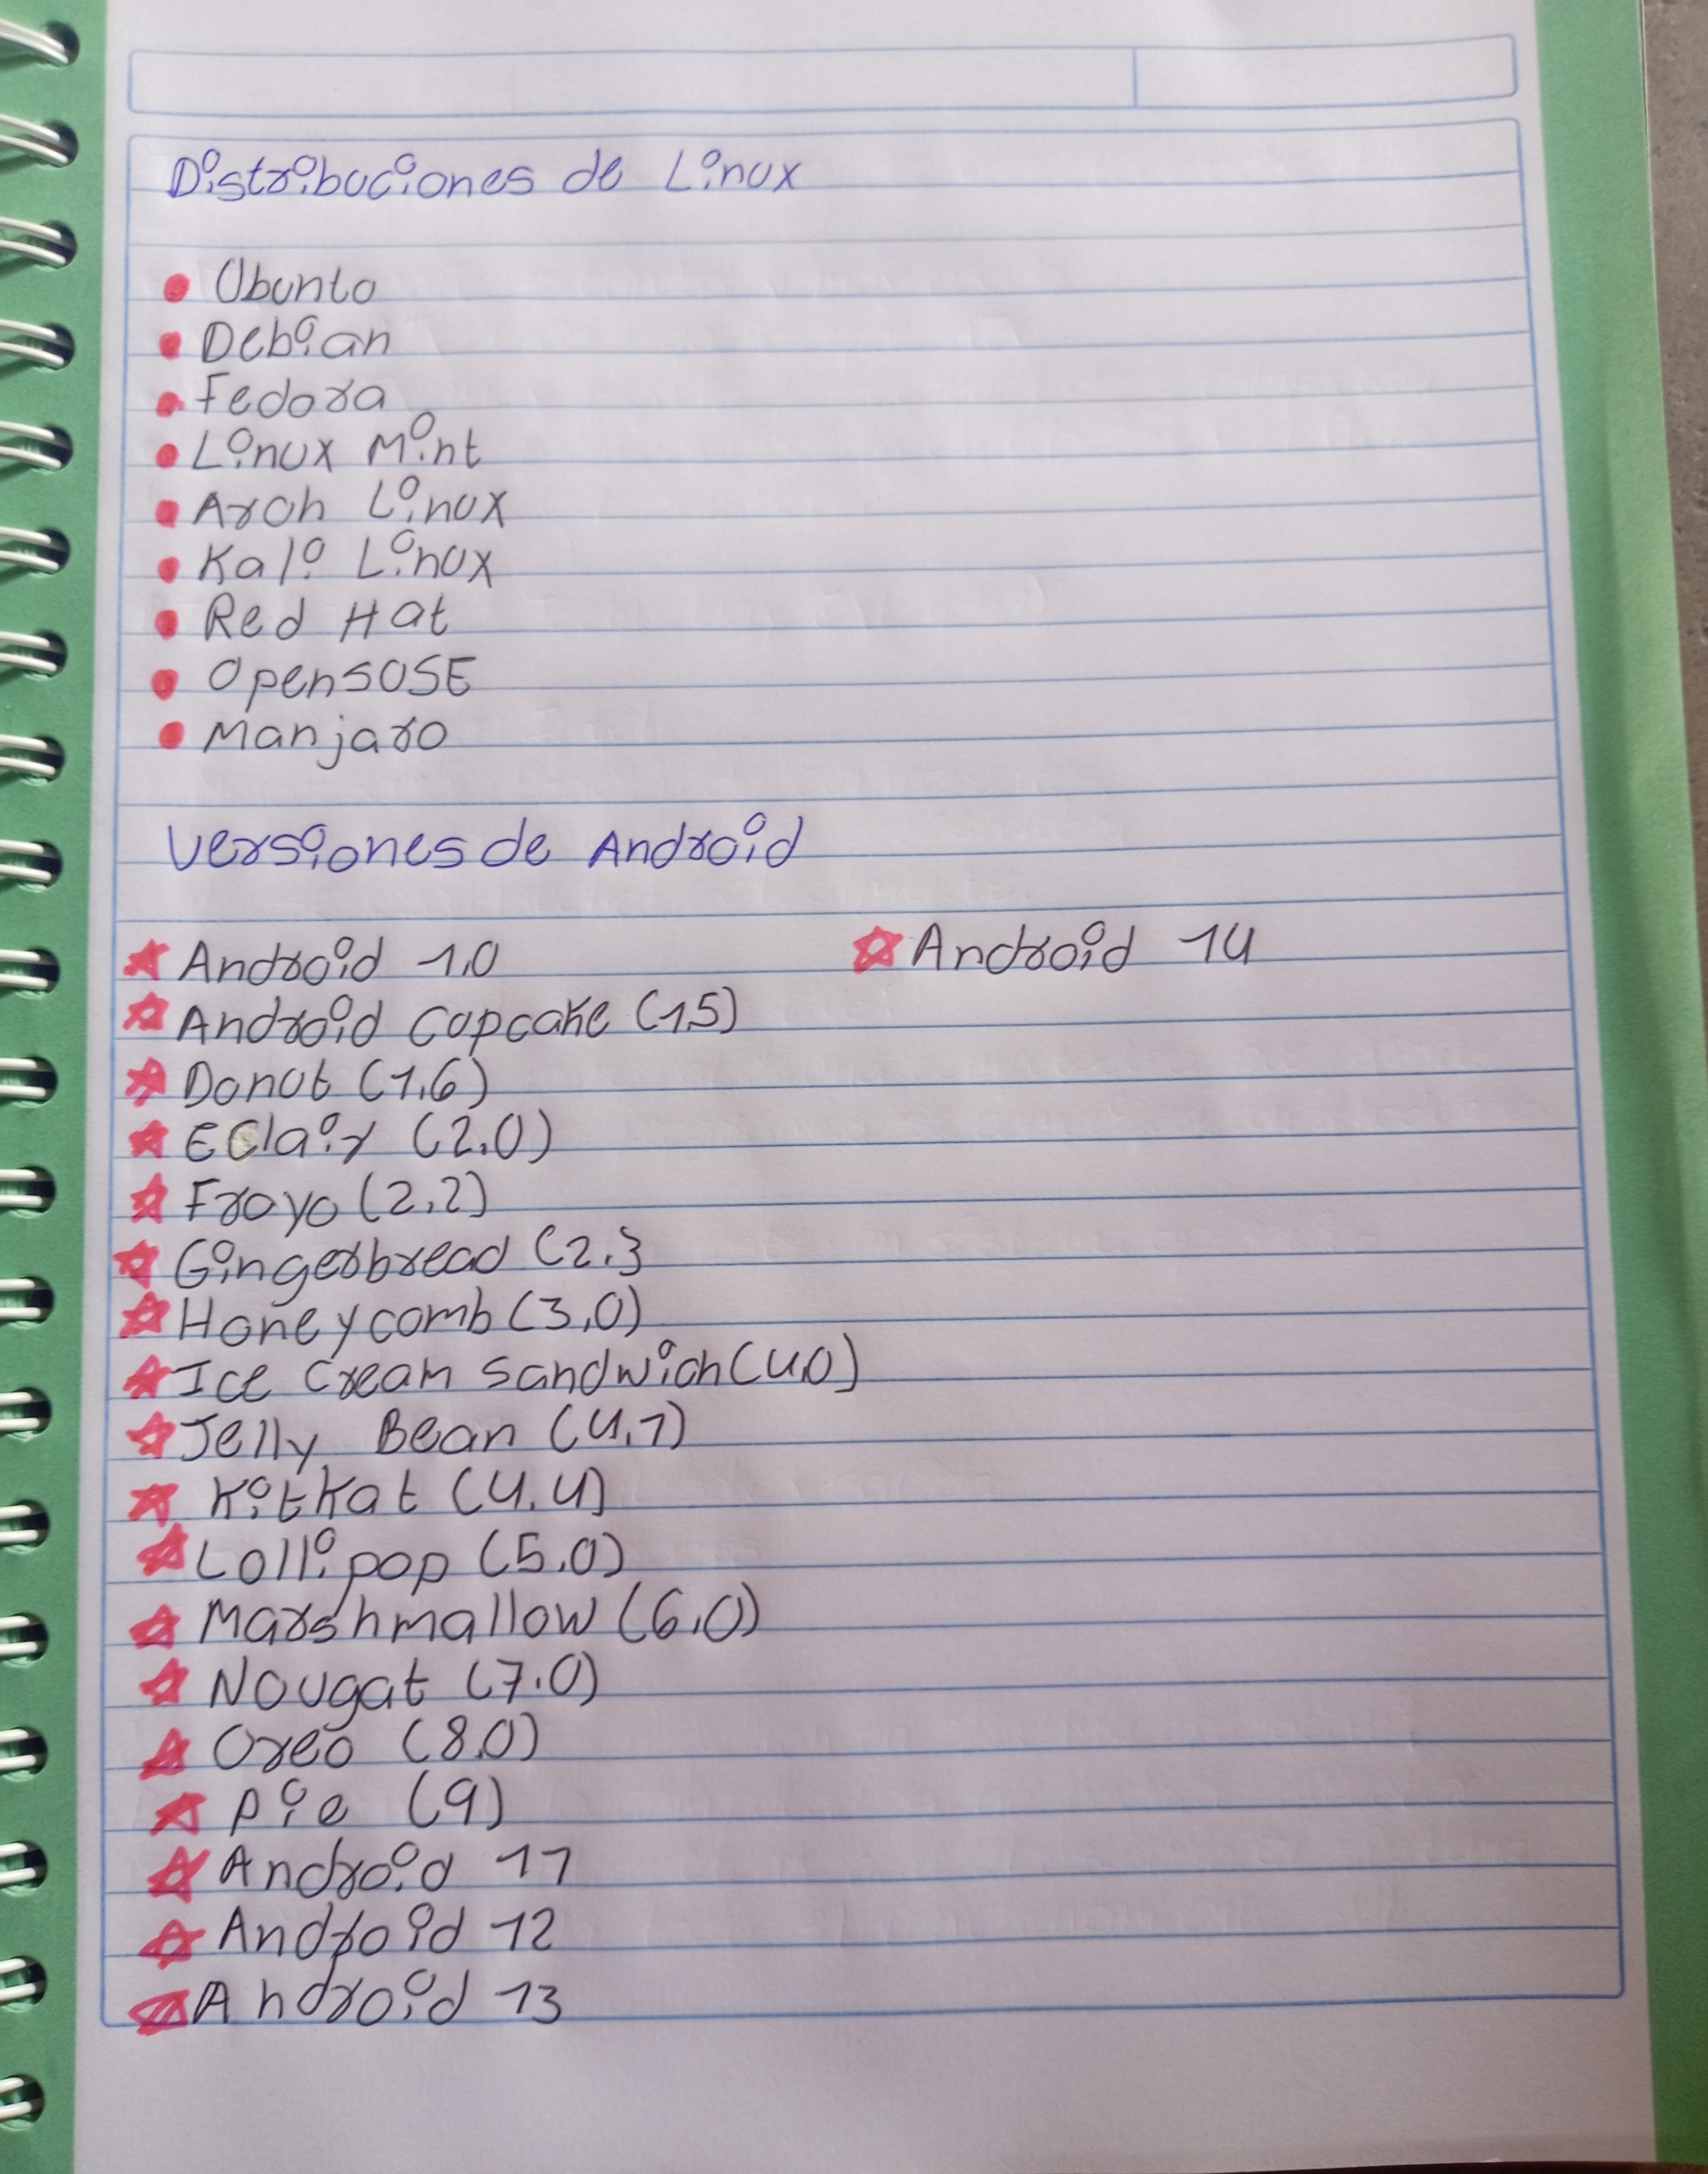 Distribuciones de Linux
• Ubuntu
• Debian
• Fedora
• Linux Mint
• Arch Linux
• Kali Linux
• Red Hat
• OpenSUSE
• Manjaro
Versiones de Android
☆ Android 1,0
☆ Android Cupcake (1,5)
☆ Donut (1,6)
☆ Eclair (2,0)
☆ Froyo (2,2)
☆ Gingerbread (2,3
☆ Honeycomb (3,0)
☆ Ice Cream Sandwich (4,0)
☆ Jelly Bean (4,1)
☆ KitKat (4,4)
☆ Lollipop (5,0)
☆ Marshmallow (6,0)
☆ Nougat (7,0)
☆ Oreo (8,0)
☆ Pie (9)
☆ Android 11
☆ Android 12
☆ Android 13
☆ Android 14